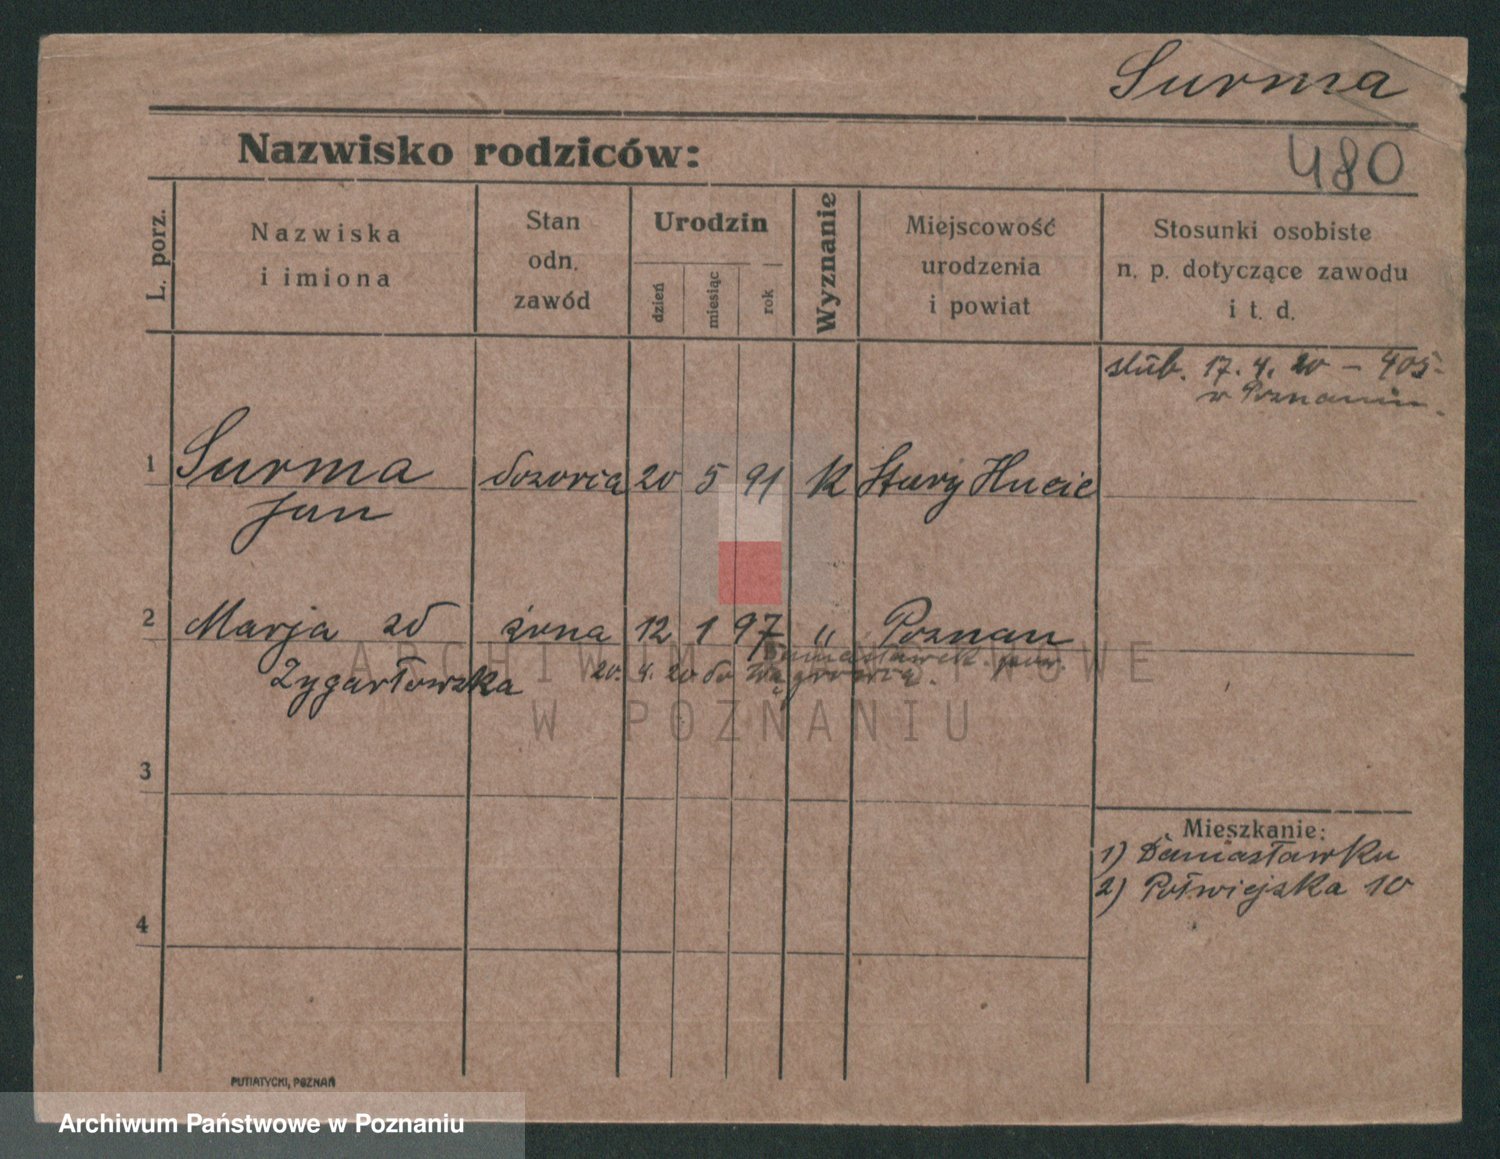 Surma
Nazwisko rodziców:
480
L. porz.
Nazwiska
i imiona
Stan
odn.
zawód
Urodzin
dzień
miesiąc
rok
Wyznanie
Miejscowość
urodzenia
i powiat
Stosunki osobiste
n. p. dotyczące zawodu
i t. d.
ślub. 17. 4. 20 – 405.
w Poznaniu.
1 Surma dozorca 20 5 91 k Stary
Jan
2 Marja zd żona 12 1 97 " Poznan
Zygartowska
Damasławek. pow.
20. 4. 20 do
3
4
Mieszkanie:
1) Damasławku
2) Półwiejska 10
ARCHIWUM PAŃSTWOWE
W POZNANIU
PUTIATYCKI, POZNAŃ
Archiwum Państwowe w Poznaniu